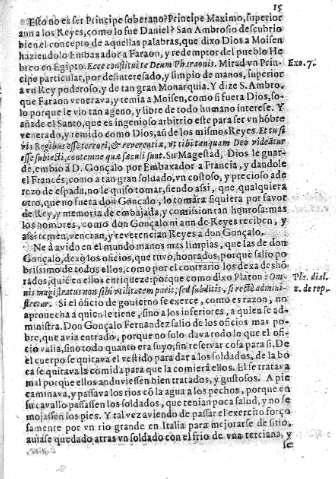 15
Esto no es ser Principe soberano? Principe Maximo, superior
aun a los Reyes, como lo fue Daniel? San Ambrosio descubrio
bien el concepto de aquellas palabras, que dixo Dios a Moisen
haziendolo Embaxador a Faraon, y redemptor del pueblo He
breo en Egipto. Ecce constitui te Deum Pharaonis. Mirad vn Prin-
Exo. 7.
cipe particular, por desinteresado, y limpio de manos, superior
a vn Rey poderoso, y de tan gran Monarquia. Y dize S. Ambro-
que Faraon veneraua, y temia a Moisen, como si fuera Dios, so-
lo porque le vio tan ageno, y libre de todo humano interese. Y
añade el Santo, que es ingenioso arbitrio este para ser vn hõbre
venerado, y temido como Dios, aũ de los mismos Reyes. Et tu si
vis Regibus esse terrori, & reuerentia, vt tibi tanquam Deo videatur
esse subiecti, contemne quæ sæculi sunt. Su Magestad, Dios le guar-
de, embio a D. Gonçalo por Embaxador a Francia, y dandole
el Francés, como a tan gran soldado, vn costoso, y precioso ade
reço de espada, no le quiso tomar, siendo assi, que qualquiera
otro, que no fuera don Gonçalo, lo tomàra siquiera por fauor
de Rey, y memoria de embajada, y comission tan honrosa: mas
los hombres, como don Gonçalo ni aun de Reyes reciben, y
assi temen, veneran, y reuerencian Reyes a don Gonçalo.
No à auido en el mundo manos mas limpias, que las de don
Gonçalo, dexò los oficios, que tuuo, honrados, porque salio po
brissimo de todos ellos, como por el contrario los dexa desho
norados, quien de ellos enriqueze: porque como dixo Platon: Om-
nis magistratus non sibi vtilitatem parit, sed subditis, si rectè adminis-
Plt. dial.
tretur. Si el oficio de gouierno se exerce, como es razon, no
1. de rep.
aprouecha a quien le tiene, sino a los inferiores, a quien se ad-
ministra. Don Gonçalo Fernandez salio de los oficios mas po-
bre, que auia entrado, porque no solo daua todo lo que el ofi-
cio valia, sino todo quanto era suyo, sin reseruar cosa para si. De
el cuerpo se quitaua el vestido para dar a los soldados, de la bo
ca se quitaua la comida para que la comiera ellos. El se trataua
mal porque ellos anduuiessen bien tratados, y gustosos. A pie
caminaua, y passaua los rios cõ la agua a los pechos, porque en
su cauallo passassen los soldados, que tenian poca salud, y no se
mojassen los pies. Y tal vez auiendo de passar el exercito forço
samente por vn rio grande en Italia para mejorarse de sitio,
auiase quedado atras vn soldado con el frio de vna terciana, y
se